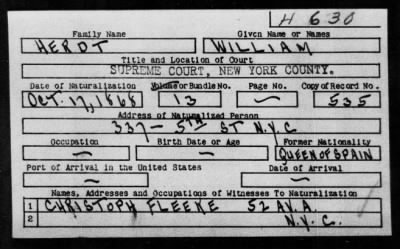 H 630
Family Name Given Name or Names
HERDT WILLIAM
Title and Location of Court
SUPREME COURT, NEW YORK COUNTY.
Date of Naturalization Volume or Bundle No. Page No. Copy of Record No.
OCT. 17, 1868 13 — 535
Address of Naturalized Person
337 — 5TH ST N.Y.C
Occupation Birth Date or Age Former Nationality
— — QUEEN OF SPAIN
Port of Arrival in the United States Date of Arrival
— —
Names, Addresses and Occupations of Witnesses To Naturalization
1 CHRISTOPH FLEEKE 52 AV. A.
2 N.Y.C.